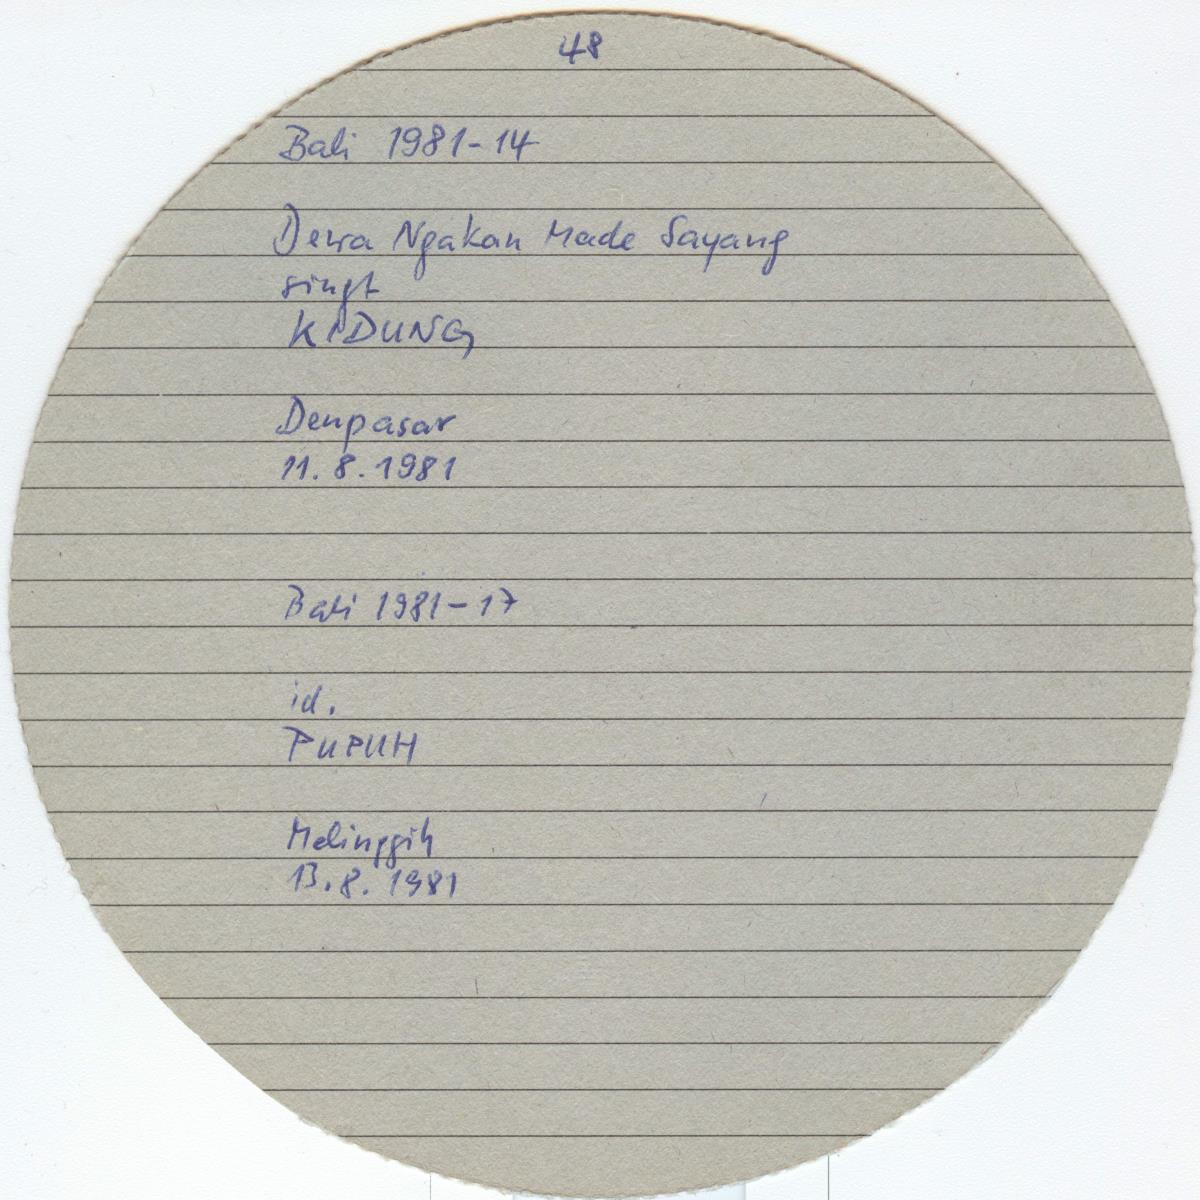 48
Bali 1981-14
Dewa Ngakan Made Sayang
singt
KIDUNG
Denpasar
11.8.1981
Bali 1981-17
id.
PUPUH
Melinggih
13.8.1981